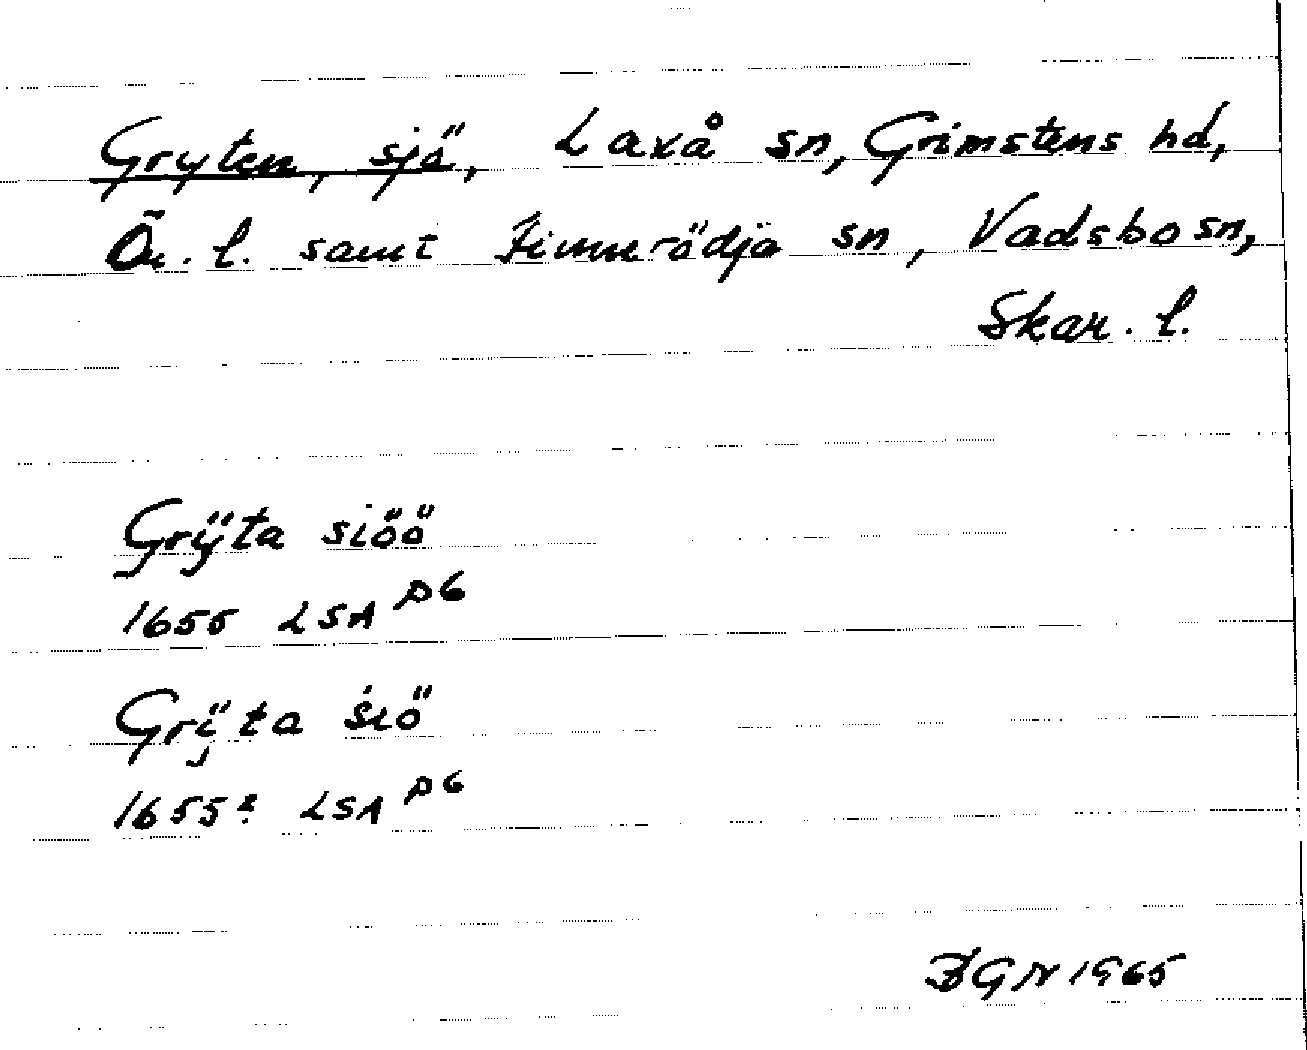 Gryten, sjö, Laxå sn, Grimstens hd,
Ör. l. samt Finnerödja sn, Vadsbo sn,
Skar. l.
Grÿta siöö
1655 LSA P6
Grÿta siö
1655? LSA P6
BGN 1965